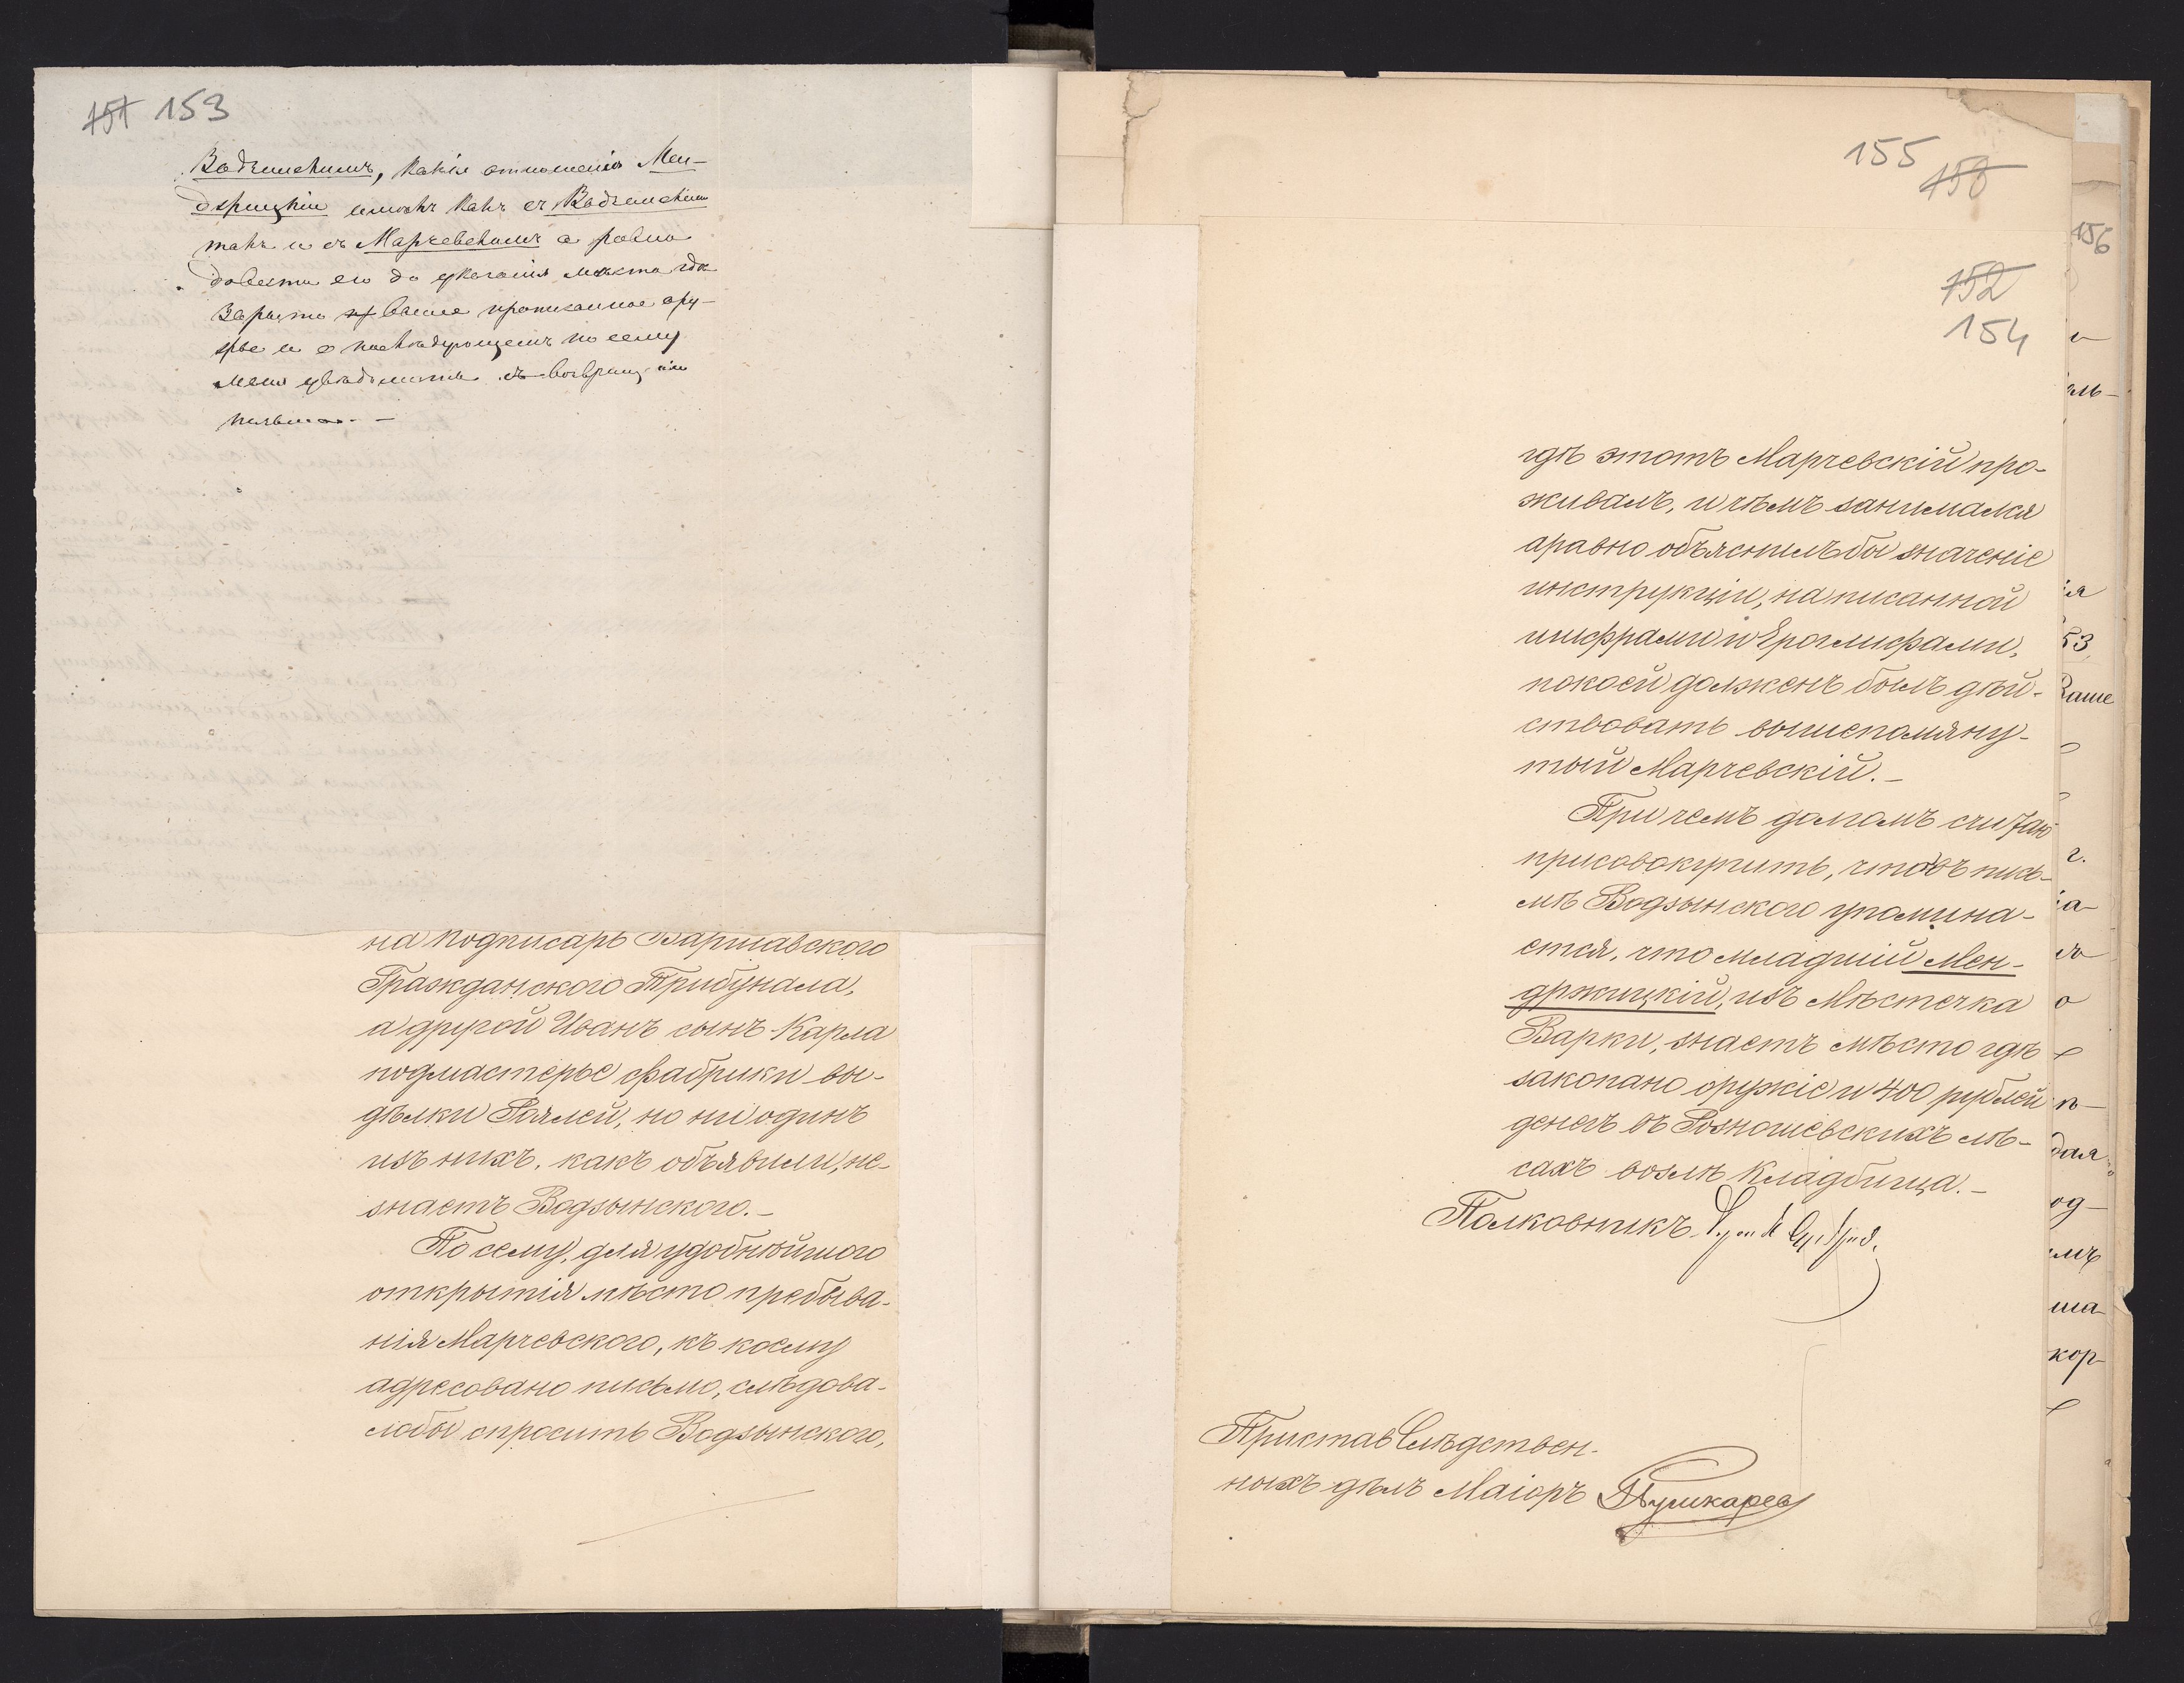 151 153
Водзынскимъ, какія отношенія Мен-
држицкій имѣетъ какъ съ Водзынскимъ
такъ и съ Марчевскимъ а равно
довести его до указанія мѣста гдѣ
зарыто выше прописанное ору-
жіе и о послѣдующемъ по сему
меня увѣдомить съ возвращеніемъ
письма. -
на подписарь Варшавского
Гражданского Трибунала,
а другой Иванъ сынъ Карла
подмастерье фабрики вы-
дѣлки Роялей, но ни одинъ
изъ нихъ, какъ объявили, не-
знаетъ Водзынского. -
По сему, для удобнѣйшого
открытія мѣсто пребыва-
нія Марчевского, къ коему
адресовано письмо, слѣдова-
лобы спросить Водзынского,
155
150
152
154
гдѣ этотъ Марчевскій про-
живалъ, и чѣмъ занимался
аравно объяснилъ бы значеніе
инструкціи, написанной
шифрами и Ероглифами,
покоей долженъ былъ дѣй-
ствовать вышепомяну-
тый Марчевскій. -
При чемъ долгомъ считаю
присовокупить, что въ пись-
мѣ Водзынского упомина-
ется, что младшій Мен-
држицкій, изъ Мѣстечка
Варки, знаетъ мѣсто гдѣ
закопано оружіе и 400 рублей
денегъ въ Розношевскихъ лѣ-
сахъ возлѣ Кладбища. -
Полковникъ
Пристав Слѣдствен-
ныхъ дѣлъ Маіоръ Пушкарев
156